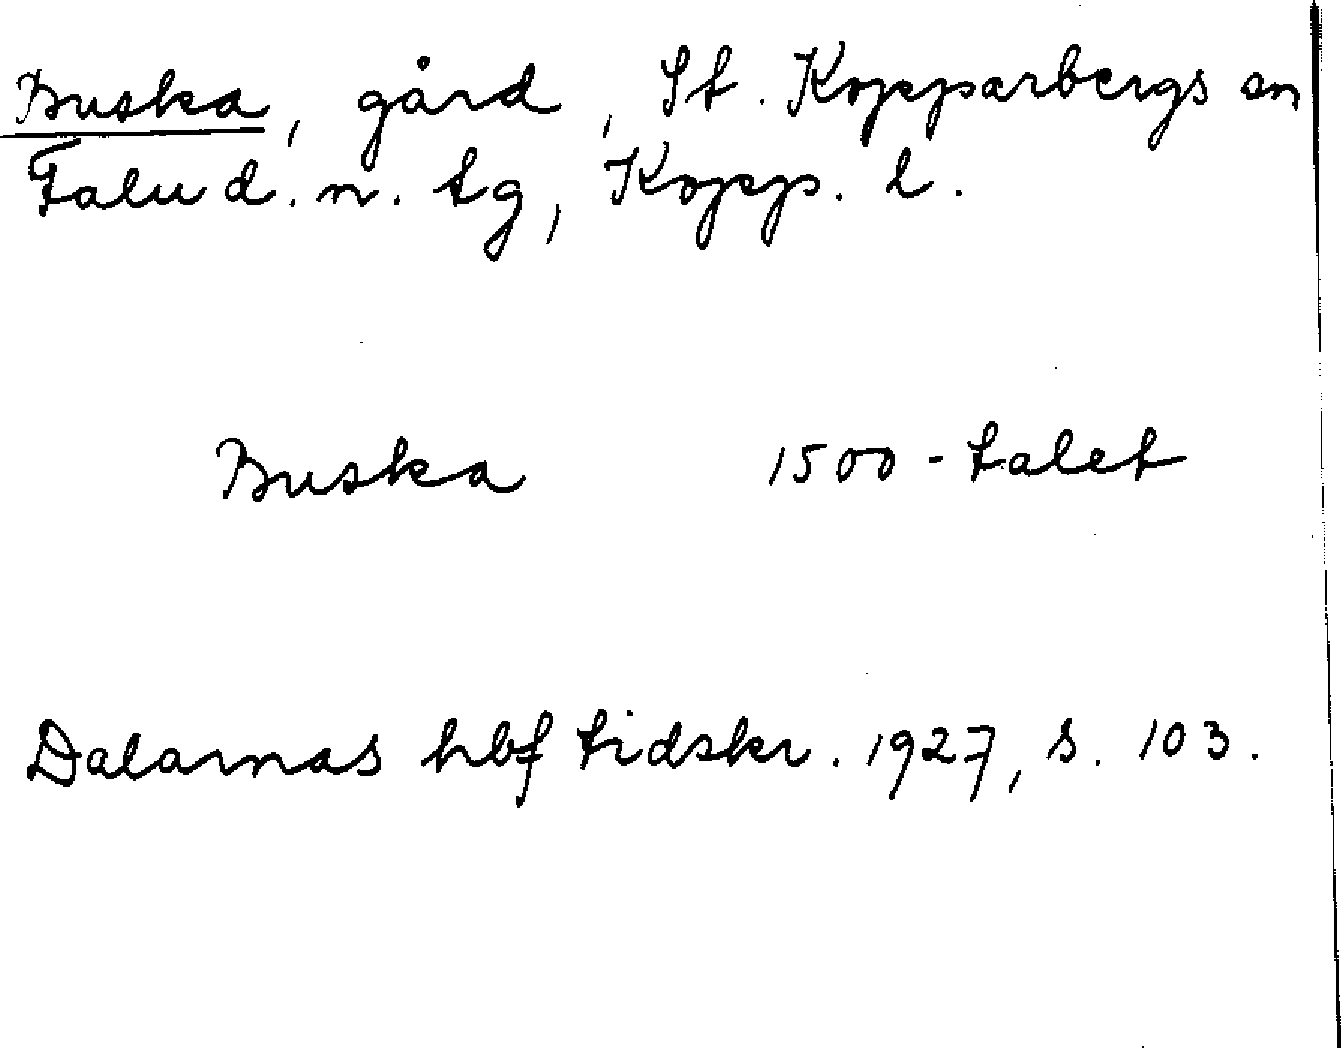 Buska, gård, St. Kopparbergs sn
Falu d. n. tg, Kopp. l.
Buska 1500-talet
Dalarnas hbf tidskr. 1927, s. 103.